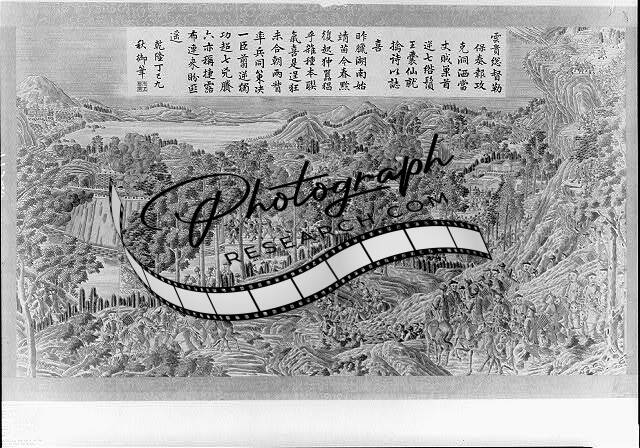 雲貴總督勒
保奏報攻
克洞洒當
丈賊巢首
逆七綹鬚
王囊仙就
擒詩以誌
喜
昨臘湖南始
靖苗今春黔
復起狆猖
乎雖種本聯
氣喜是逞狂
未合朝兩省
率兵同策決
一臣剪逆獨
功超七
六亦稱捷露
布連來盼遐
遥
乾隆丁巳九
秋御筆
Photograph
RESEARCH.COM